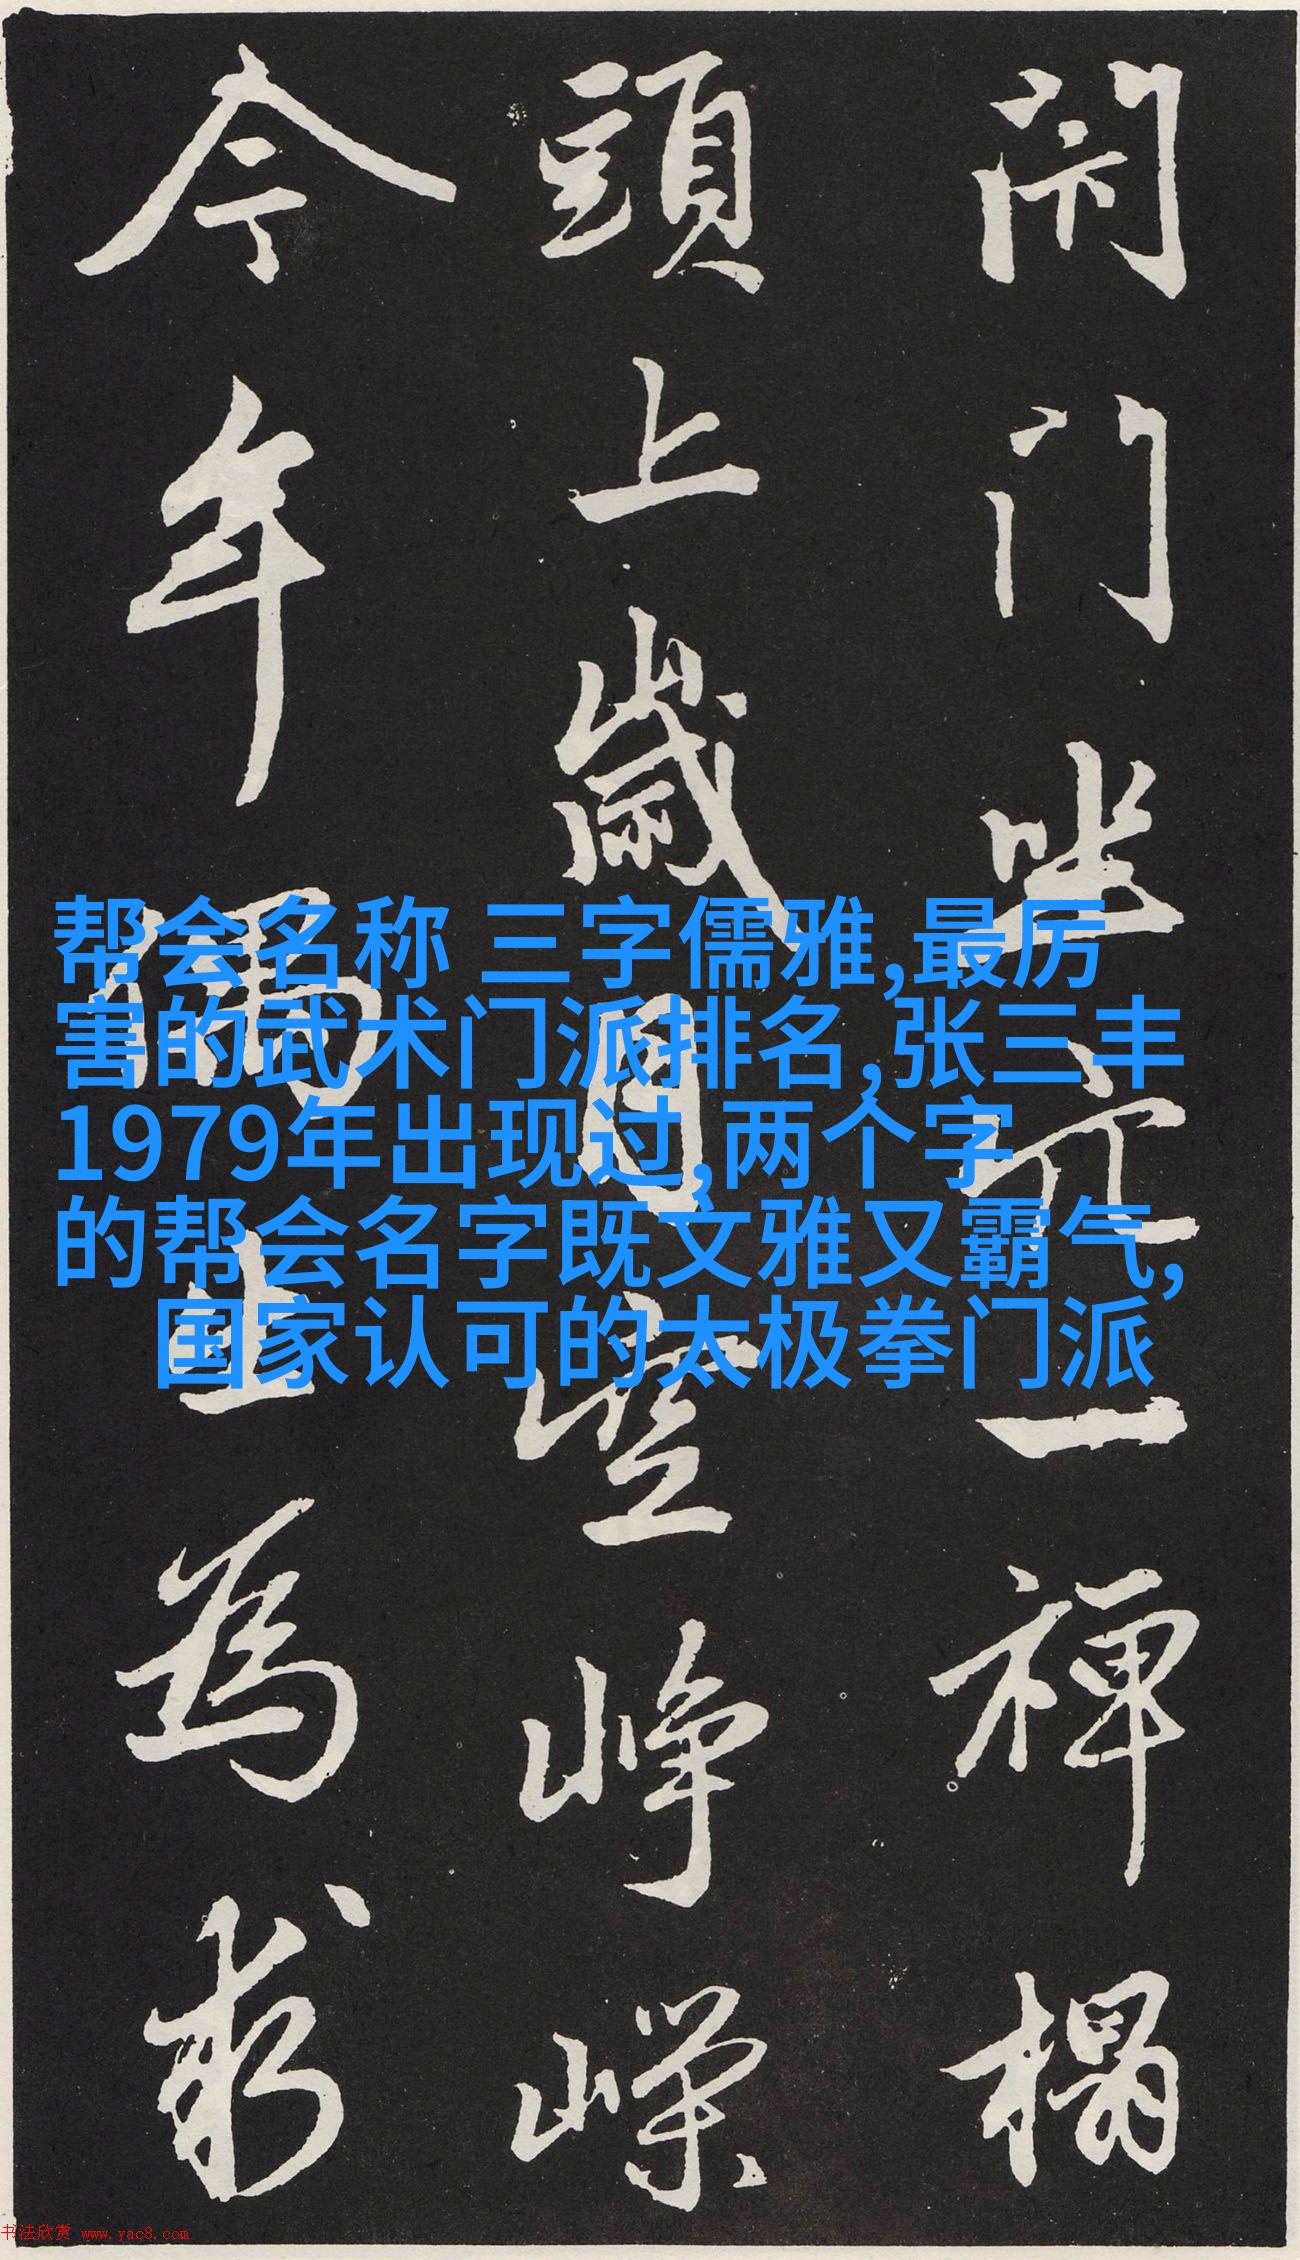 闭门坐穴一禪榻
頭上歲月空崢嶸
今年偶出為求
帮会名称 三字儒雅,最厉
害的武术门派排名,张三丰
1979年出现过,两个字
的帮会名字既文雅又霸气,
国家认可的太极拳门派
书法欣赏 www.yac8.com